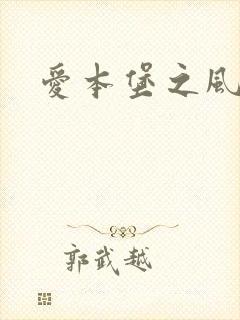 愛本堡之風
郭武越